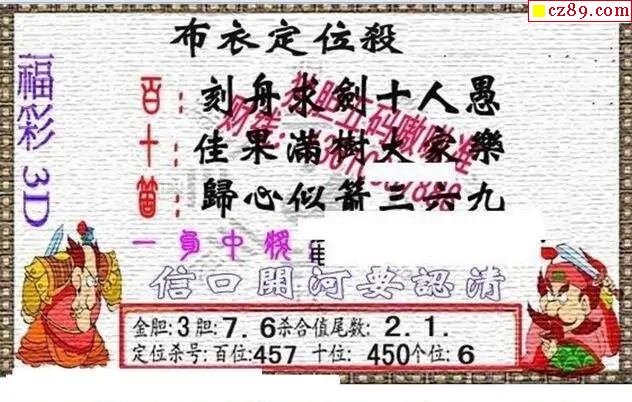 cz89.com
布衣定位殺
福彩 3D
百：刻舟求劍十人愚
十：佳果滿樹大家樂
個：歸心似箭三六九
信口開河要認清
金胆:3胆:7.6杀合值尾数:2.1.
定位杀号:百位:457 十位:450个位:6